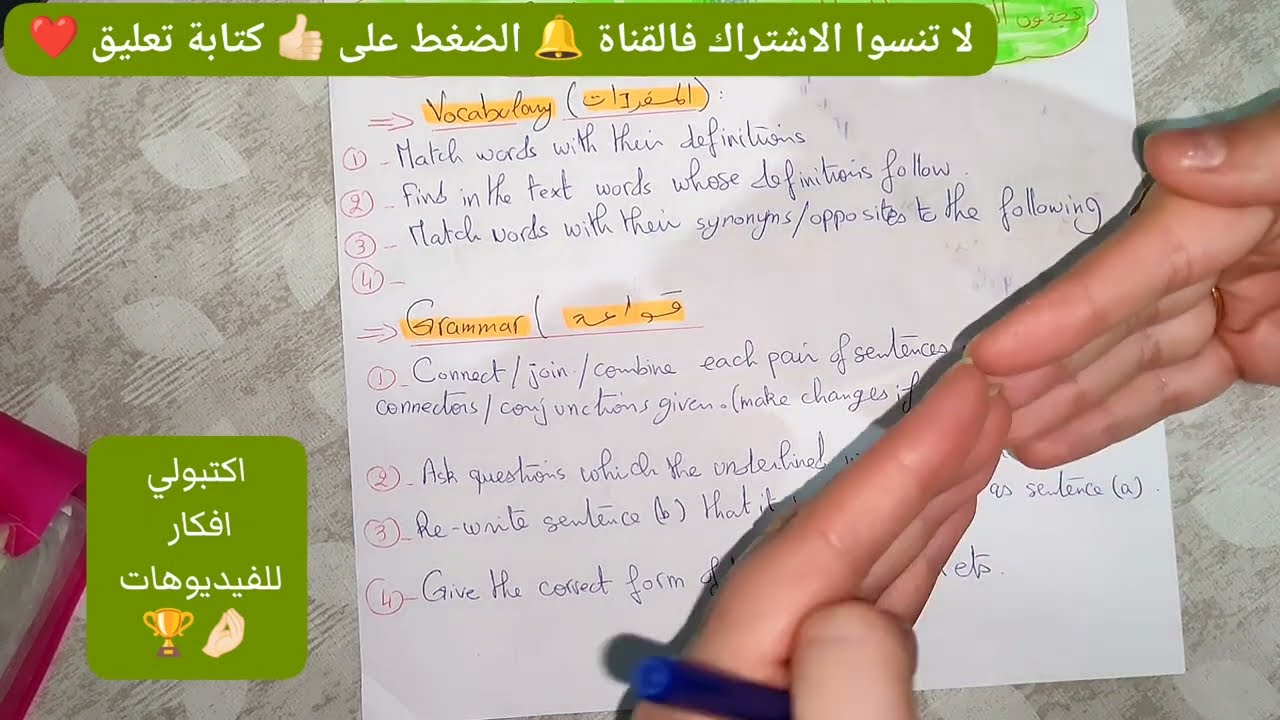 لا تنسوا الاشتراك فالقناة 🔔 الضغط على 👍🏻 كتابة تعليق ❤️
⇒ Vocabulary (المفردات) :
① - Match words with their definitions
② - Find in the text words whose definitions follow.
③ - Match words with their synonyns/opposites to the following
④ -
⇒ Grammar ( قواعد
① - Connect/join/combine each pair of sentences
connectors/conjunctions given. (make changes if
② - Ask questions which the underlined
③ - Re-write sentence (b) that it as sentence (a).
④ - Give the correct form of
اكتبولي
افكار
للفيديوهات
🏆🤌🏻